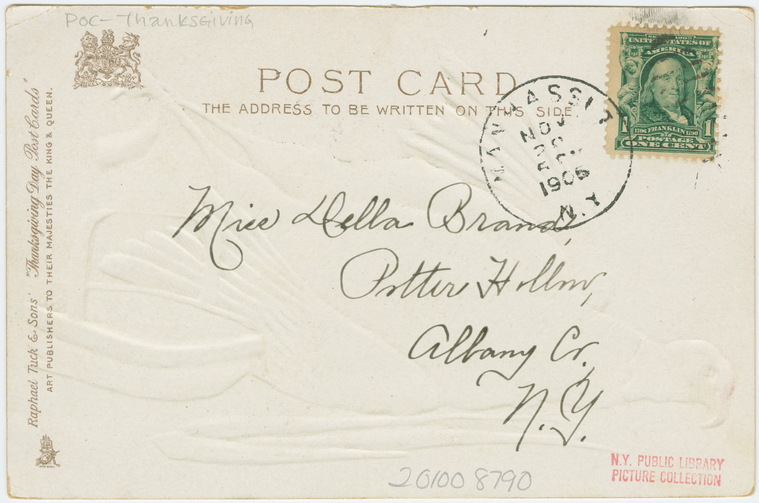 POC-Thanksgiving
POST CARD
THE ADDRESS TO BE WRITTEN ON THIS SIDE.
UNITED STATES OF
AMERICA
1 FRANKLIN 1
POSTAGE
ONE CENT
MANHASSET
NOV
1906
N.Y.
Miss Della Brand,
Potter Hollow,
Albany Co,
N.Y.
Raphael Tuck & Sons' "Thanksgiving Day Post Cards"
ART PUBLISHERS TO THEIR MAJESTIES THE KING & QUEEN.
201008790
N.Y. PUBLIC LIBRARY
PICTURE COLLECTION